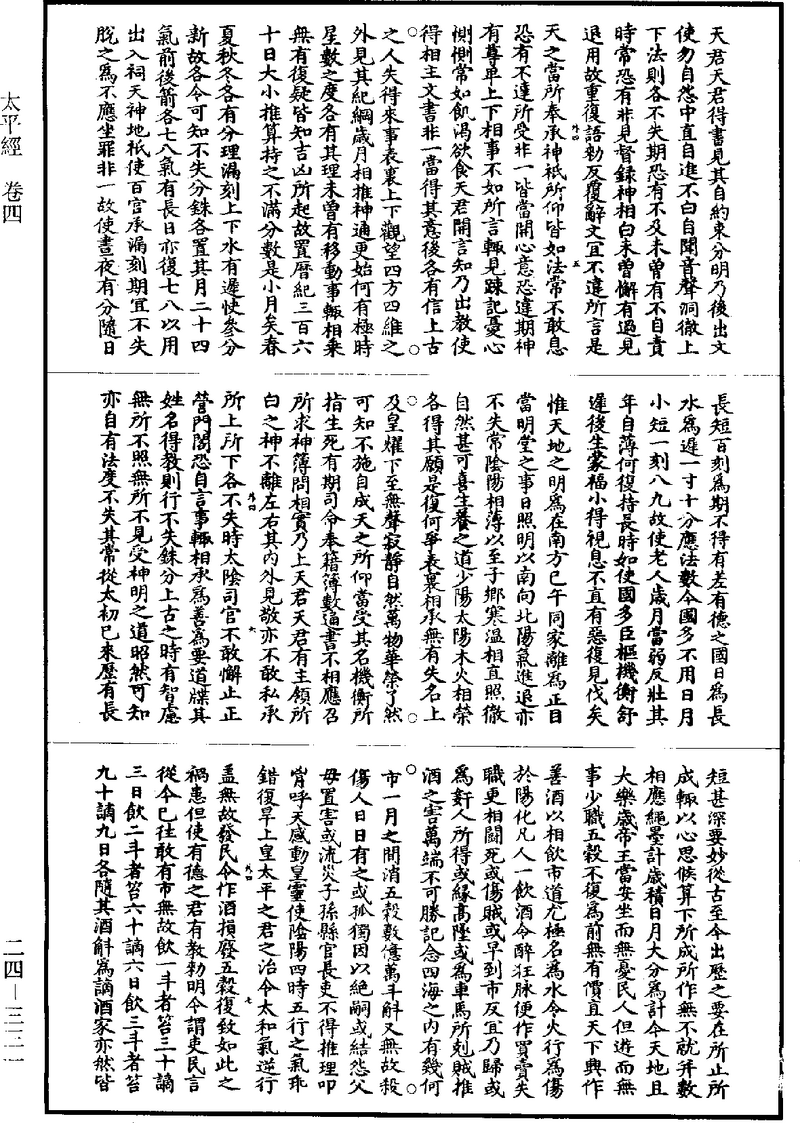 太平經 卷四
天君天君得書見其自約束分明乃後出文
使勿自怨中直自進不白自聞音聲洞徹上
下法則各不失期恐有不及未曾有不自責
時常恐有非見督錄神相白未曾懈有過見
退用故重復語勑反覆辭文宜不違所言是
外四 五
天之當所奉承神祇所仰皆如法常不敢息
恐有不達所受非一皆當開心意恐違期神
有尊卑上下相事不如所言輒見疎記憂心
惻惻常如飢渴欲食天君開言知乃出教使
得相主文書非一當得其意後各有信上古
之人失得來事表裏上下觀望四方四維之
外見其紀綱歲月相推神通更始何有極時
星數之度各有其理未曾有移動事輒相乘
無有復疑皆知吉凶所起故置曆紀三百六
十日大小推算持之不滿分數是小月矣春
夏秋冬各有分理漏刻上下水有遲快參分
新故各令可知不失分銖各置其月二十四
氣前後箭各七八氣有長日亦復七八以用
出入祠天神地祇使百官承漏刻期宜不失
脫之為不應坐罪非一故使晝夜有分隨日
長短百刻為期不得有差有德之國日為長
水為遲一寸十分應法數今國多不用日月
小短一刻八九故使老人歲月當弱反壯其
年自薄何復持長時如使國多臣樞機衡舒
遲後生蒙福小得視息不直有惡復見伐矣
惟天地之明為在南方巳午同家離為正目
當明堂之事日照明以南向北陽氣進退亦
不失常陰陽相薄以至子鄉寒溫相直照徹
自然甚可喜生養之道少陽太陽木火相榮
各得其願是復何爭表裏相承無有失名上
及皇燿下至無聲寂靜自然萬物華榮了然
可知不施自成天之所仰當受其名機衡所
指生死有期司命奉籍簿數逼書不相應召
所求神簿問相實乃上天君天君有主領所
白之神不離左右其內外見敬亦不敢私承
外四 六
所上所下各不失時太陰司官不敢懈止正
營門閤恐自言事輒相承為善為要道牒其
姓名得教則行不失銖分上古之時有智慮
無所不照無所不見受神明之道昭然可知
亦自有法度不失其常從太初已來歷有長
短甚深要妙從古至今出歷之要在所止所
成輒以心思候算下所成所作無不就并數
相應繩墨計歲積日月大分為計今天地且
大樂歲帝王當安坐而無憂民人但遊而無
事少職五穀不復為前無有價直天下興作
善酒以相飲市道尤極名為水令火行為傷
於陽化凡人一飲酒令醉狂脉便作買賣失
職更相鬬死或傷賊或早到市反宜乃歸或
為奸人所得或緣高墜或為車馬所剋賊推
酒之害萬端不可勝記念四海之內有幾何
市一月之間消五穀數億萬斗斛又無故殺
傷人日日有之或孤獨因以絕嗣或結怨父
母置害或流災子孫縣官長吏不得推理叩
胷呼天感動皇靈使陰陽四時五行之氣乖
錯復旱上皇太平之君之治令太和氣逆行
外四 七
盖無故發民令作酒損廢五穀復致如此之
禍患但使有德之君有教勑明令謂吏民言
從今已往敢有市無故飲一斗者笞三十謫
三日飲二斗者笞六十謫六日飲三斗者笞
九十謫九日各隨其酒斛為謫酒家亦然皆
二四—三二一